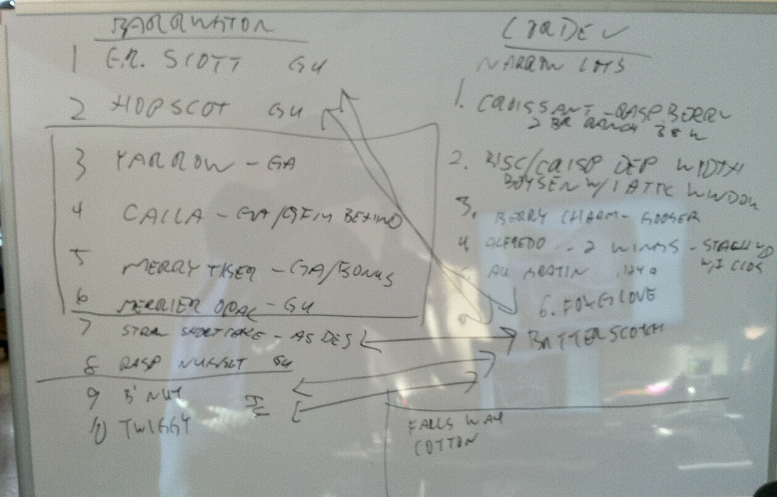 BARRINGTON
1 E.R. SCOTT GU
2 HOPSCOT GU
3 YARROW - GA
4 CALLA - GA/ BEHIND
5 MERRY TIGER - GA/BONUS
6 MERRIER OPAL - GU
7 STRAW SHORTCAKE - AS DES
8 RASP NUGGET GU
9 B'NUT
10 TWIGGY
NARROW LOTS
1. CROISSANT - RASPBERRY
2 BR RANCH 38 W
2. BISC/CRISP DEP WIDTH
BOYSEN W/ 1 ATTC WINDOW
3. BERRY CHARM - GOOSER
4 ALFREDO - 2 WINGS -
W/I
AU GRATIN
6. FOXGLOVE
BUTTERSCOTCH
FALLS WAY
COTTON